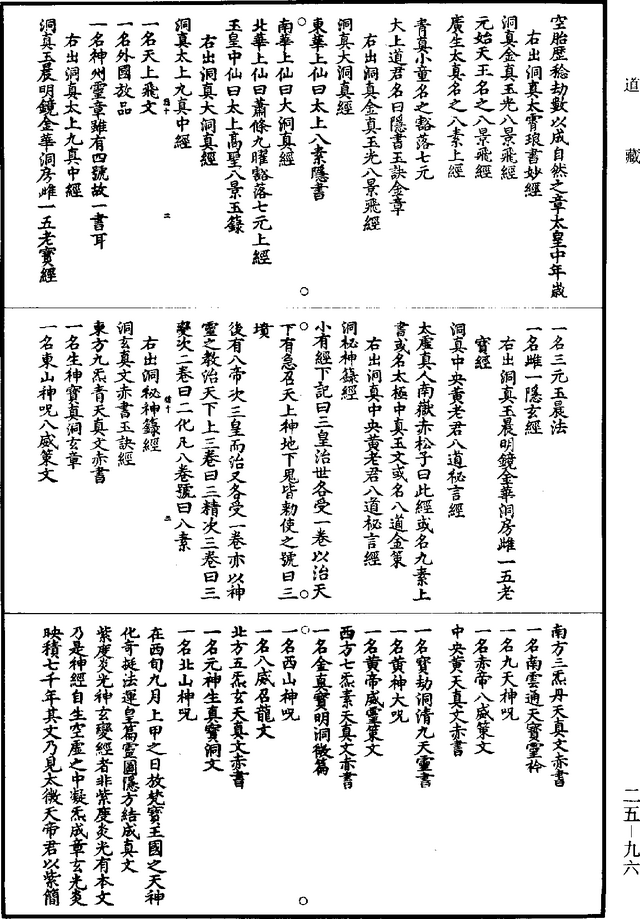 道藏
空胎歷稔劫數以成自然之章太皇中年歲
右出洞真太霄琅書妙經
洞真金真玉光八景飛經
元始天王名之八景飛經
廣生太真名之八素上經
青真小童名之豁落七元
大上道君名曰隱書玉訣金章
右出洞真金真玉光八景飛經
洞真大洞真經
東華上仙曰太上八素隱書
南華上仙曰大洞真經
北華上仙曰蕭條九曜豁落七元上經
玉皇中仙曰太上高聖八景玉籙
右出洞真大洞真經
洞真太上九真中經
一名天上飛文
一名外國放品
一名神州靈章雖有四號故一書耳
右出洞真太上九真中經
洞真玉晨明鏡金華洞房雌一五老寶經
一名三元玉晨法
一名雌一隱玄經
右出洞真玉晨明鏡金華洞房雌一五老
寶經
洞真中央黃老君八道秘言經
太虛真人南嶽赤松子曰此經或名九素上
書或名太極中真玉文或名八道金策
右出洞真中央黃老君八道祕言經
洞祕神籙經
小有經下記曰三皇治世各受一卷以治天
下有急召天上神地下鬼皆勑使之號曰三
墳
後有八帝次三皇而治又各受一卷亦以神
靈之教治天下上三卷曰三精次三卷曰三
變次二卷曰二化凡八卷號曰八素
右出洞秘神籙經
洞玄真文赤書玉訣經
東方九炁青天真文赤書
一名生神寶真洞玄章
一名東山神呪八威策文
南方三炁丹天真文赤書
一名南雲通天寶靈衿
一名九天神呪
一名赤帝八威策文
中央黃天真文赤書
一名寶劫洞清九天靈書
一名黃神大呪
一名黃帝威靈策文
西方七炁素天真文赤書
一名金真寶明洞微篇
一名西山神呪
一名八威召龍文
北方五炁玄天真文赤書
一名元神生真寶洞文
一名北山神呪
在西旬九月上甲之日放梵寶王國之天神
化奇挺法運皇篇靈圖隱方結成真文
紫度炎光神玄變經者非紫度炎光有本文
乃是神經自生空虛之中凝炁成章玄光炎
映積七千年其文乃見太微天帝君以紫簡
二五—九六